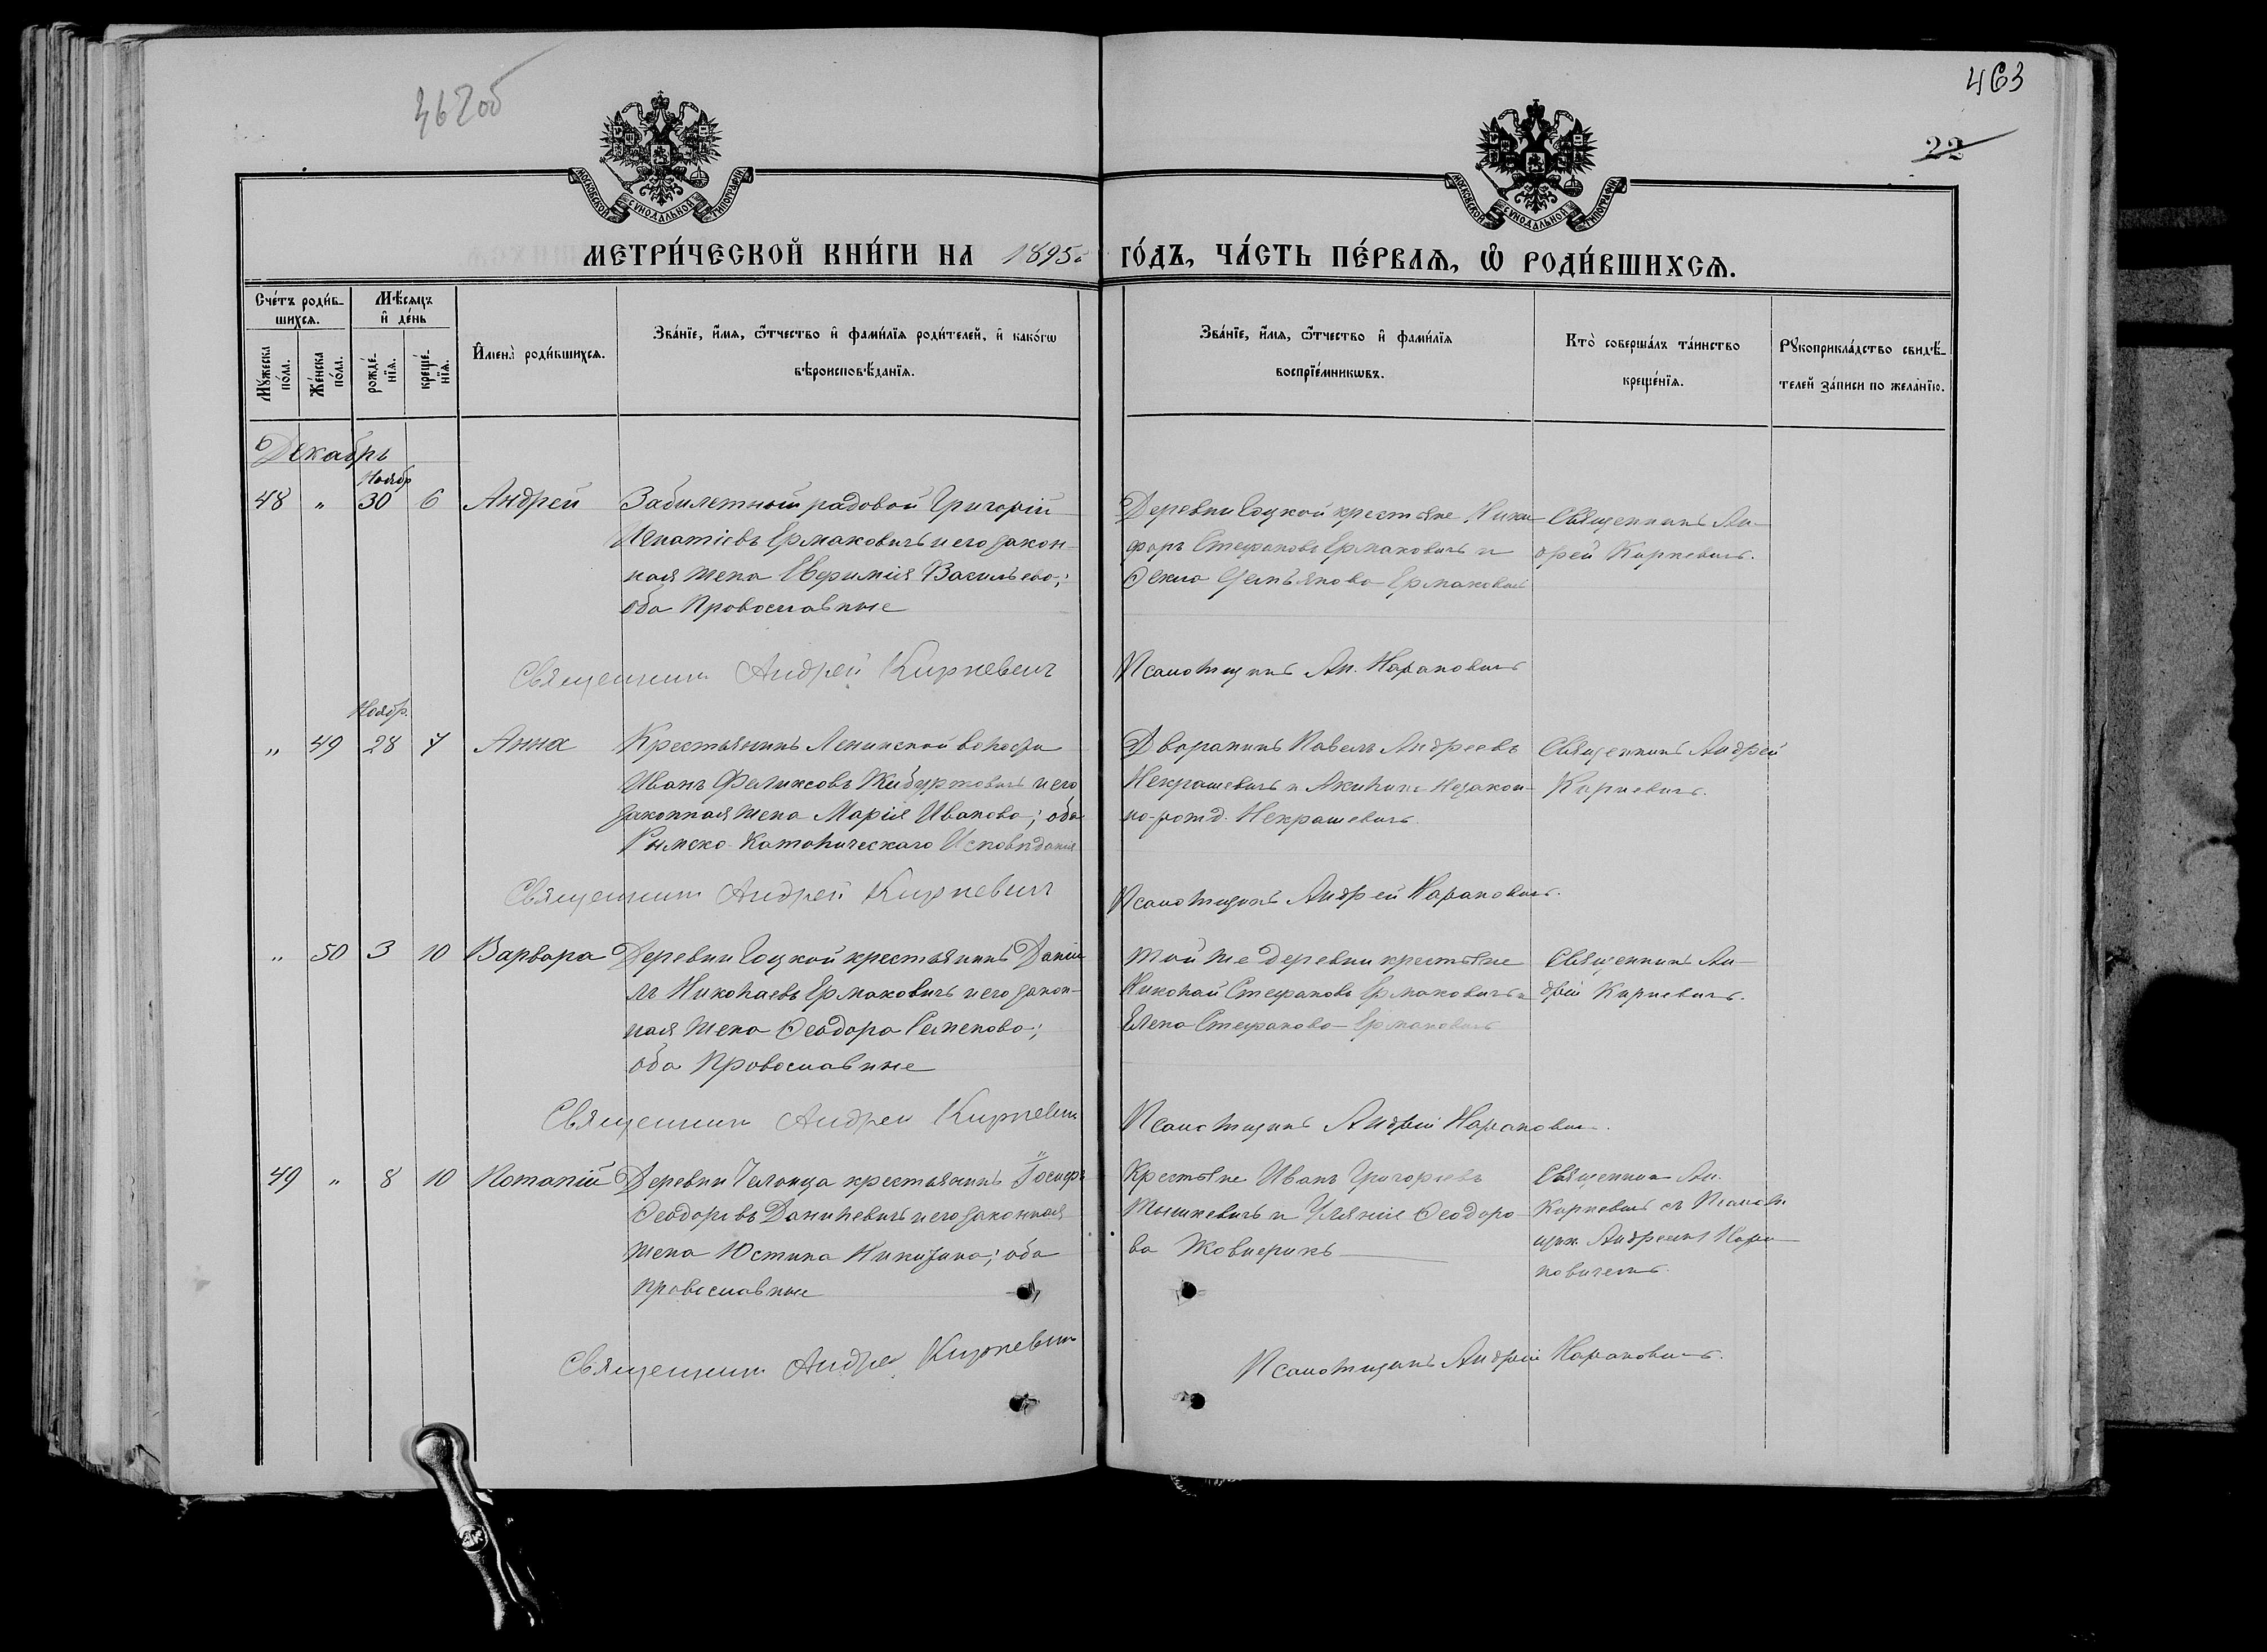 462об
463
22
МОСКОВСКОЙ СѴНОДАЛЬНОЙ ТИПОГРАФІИ
МОСКОВСКОЙ СѴНОДАЛЬНОЙ ТИПОГРАФІИ
МЕТРИ́ЧЕСКОЙ КНИ́ГИ НА 1895й ГО́ДЪ, ЧА́СТЬ ПЕ́РВАѦ, Ѡ҆ РОДИ́ВШИХСѦ.
Сче́тъ роди́в-
шихсѧ.
Мѣ́сѧцъ
и҆ де́нь
Мꙋ́жеска
по́ла.
Же́нска
по́ла.
рожде́-
нїѧ.
креще́-
нїѧ.
И҆мена̀ роди́вшихсѧ.
Зва́нїе, и҆́мѧ, ѻ҆́тчество и҆ фами́лїѧ роди́телей, и҆ како́гѡ
вѣроисповѣ́данїѧ.
Зва́нїе, и҆́мѧ, ѻ҆́тчество и҆ фами́лїѧ
воспрїе́мникѡвъ.
Кто̀ соверша́лъ та́инство
креще́нїѧ.
Рꙋкоприкла́дство свидѣ́-
телей за́писи по жела́нїю.
Декабрь
Ноябр
48 " 30 6 Андрей Забилетный рядовой Григорій
Ипатіевъ Ермаковичъ и его закон-
ная жена Евфимія Васильева;
оба Православные
Деревни Гоцкой крестьяне Ники-
форъ Стефановъ Ермаковичъ и
Ѳекла Ермаковичъ
Священникъ Ан-
дрей Киркевичъ.
Священникъ Андрей Киркевичъ
Псаломщикъ Ан. Наранович
Ноябр.
" 49 28 7 Анна Крестьянинъ Ленинской волости
Иванъ Феликсовъ и его
законная жена Марія Иванова; оба
Римско-Католическаго Исповѣданія
Дворянинъ Павелъ Андреевъ
Некрашевичъ и Акилина незакон-
но-рожд. Некрашевичъ.
Священникъ Андрей
Киркевичъ.
Священникъ Андрей Киркевичъ
Псаломщикъ Андрей Нарановичъ.
" 50 3 10 Варвара Деревни Гоцкой крестьянинъ Даніи-
лъ Николаевъ Ермаковичъ и его закон-
ная жена Ѳеодора Семенова;
оба Православные
Той же деревни крестьяне
Николай Стефановъ Ермаковичъ и
Елена Стефанова Ермаковичъ
Священникъ Ан-
дрей Киркевичъ.
Священникъ Андрей Киркевичъ
Псаломщикъ Андрей Нарановичъ.
49 " 8 10 Потапій Деревни крестьянинъ Іосифъ
Ѳеодоровъ Данилевичъ и его законная
жена Юстина Никитина; оба
православные
Крестьяне Иванъ Григорьевъ
Мышкевичъ и Уліянія Ѳеодоро-
ва Жовнерикъ
Священник Ан.
Киркевичъ съ Псалом-
щик. Андреемъ Нара-
новичемъ.
Священникъ Андрей Киркевичъ
Псаломщикъ Андрей Нарановичъ.